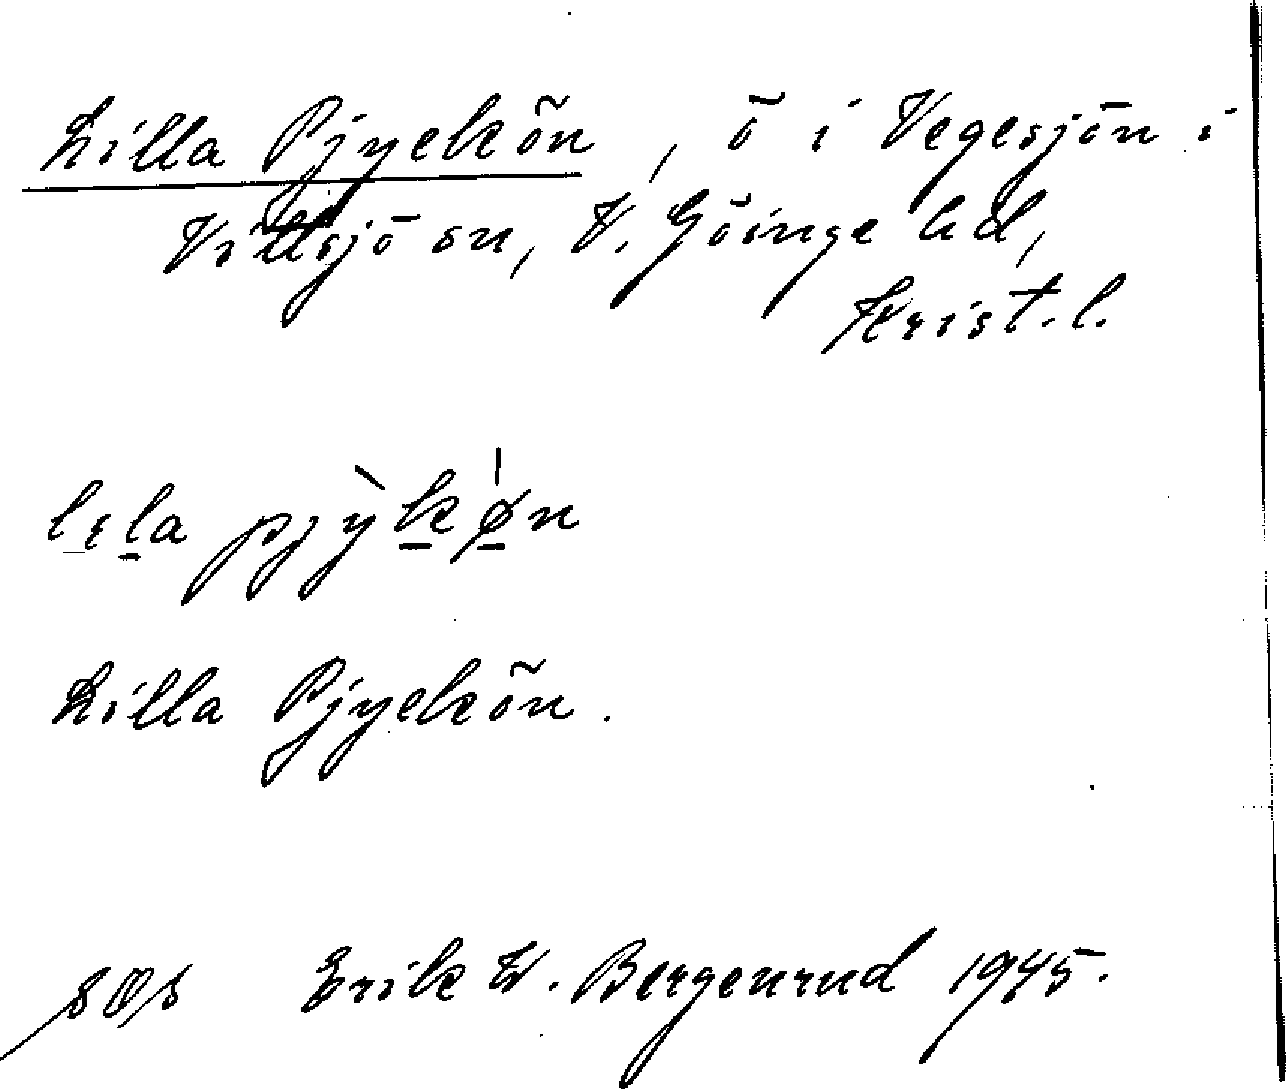 Lilla Pjyckön, ö i Vegesjön i
Vittsjö sn, V. Göinge hd,
Krist. l.
lɛla pjỳkǿn
Lilla Pjyckön.
Erik W. Bergenrud 1945.